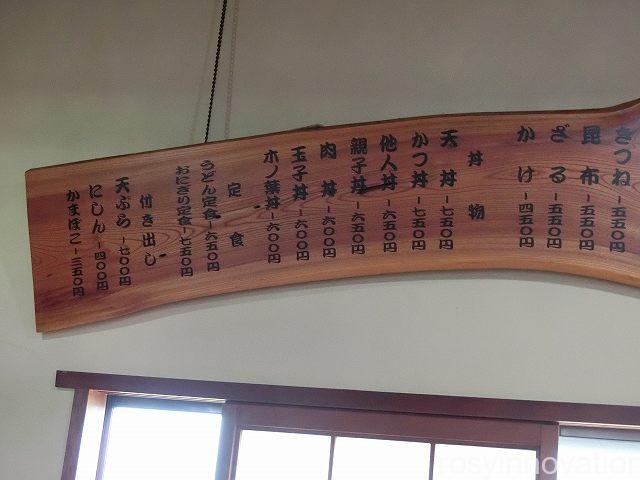 きつね－五五〇円
昆布－五五〇円
ざる－五五〇円
かけ－四五〇円
丼物
天丼－七五〇円
かつ丼－七五〇円
他人丼－六五〇円
親子丼－六五〇円
肉丼－六〇〇円
玉子丼－六〇〇円
木ノ葉丼－六〇〇円
定食
うどん定食－六五〇円
おにぎり定食－七五〇円
付き出し
天ぷら－七〇〇円
にしん－四〇〇円
かまぼこ－三五〇円
rosyinnovation